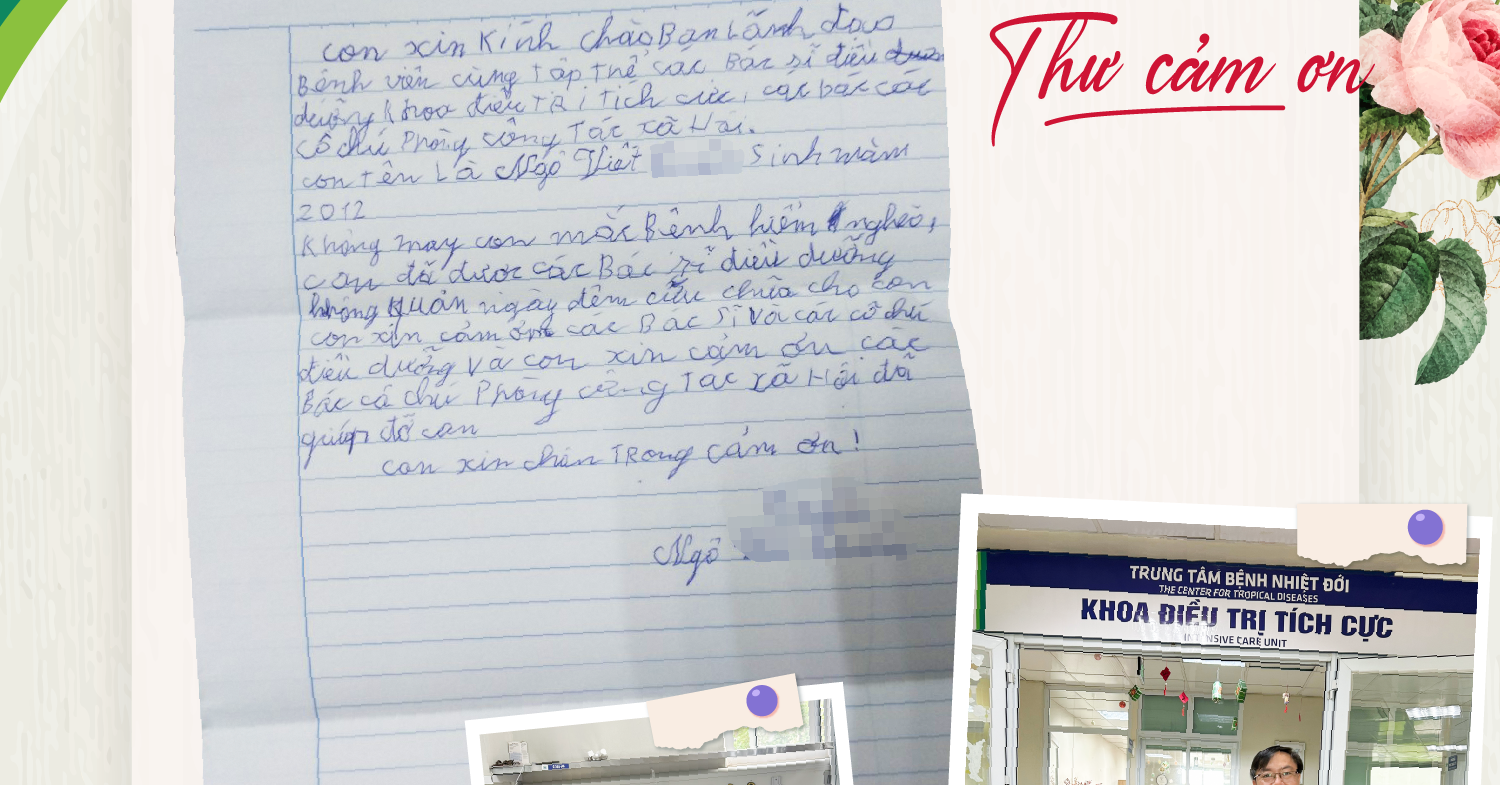 Thư cảm ơn
con xin Kính chào Ban Lãnh đạo
Bệnh viên cùng Tập Thể các Bác sĩ điều
dưỡng Khoa điều TRị Tích cực, các bác các
cô chú Phòng công Tác xã Hội.
con Tên Là Ngô Viết Sinh năm
2012
Không may con mắc Bệnh hiểm nghèo,
con đã được các Bác sĩ điều dưỡng
không quản ngày đêm cứu chữa cho con
con xin cảm ơn các Bác Sĩ và các cô chú
điều dưỡng và con xin cảm ơn các
Bác cô chú Phòng công Tác xã Hội đã
giúp đỡ con
con xin chân TRọng cảm ơn!
Ngô
TRUNG TÂM BỆNH NHIỆT ĐỚI
THE CENTER FOR TROPICAL DISEASES
KHOA ĐIỀU TRỊ TÍCH CỰC
INTENSIVE CARE UNIT